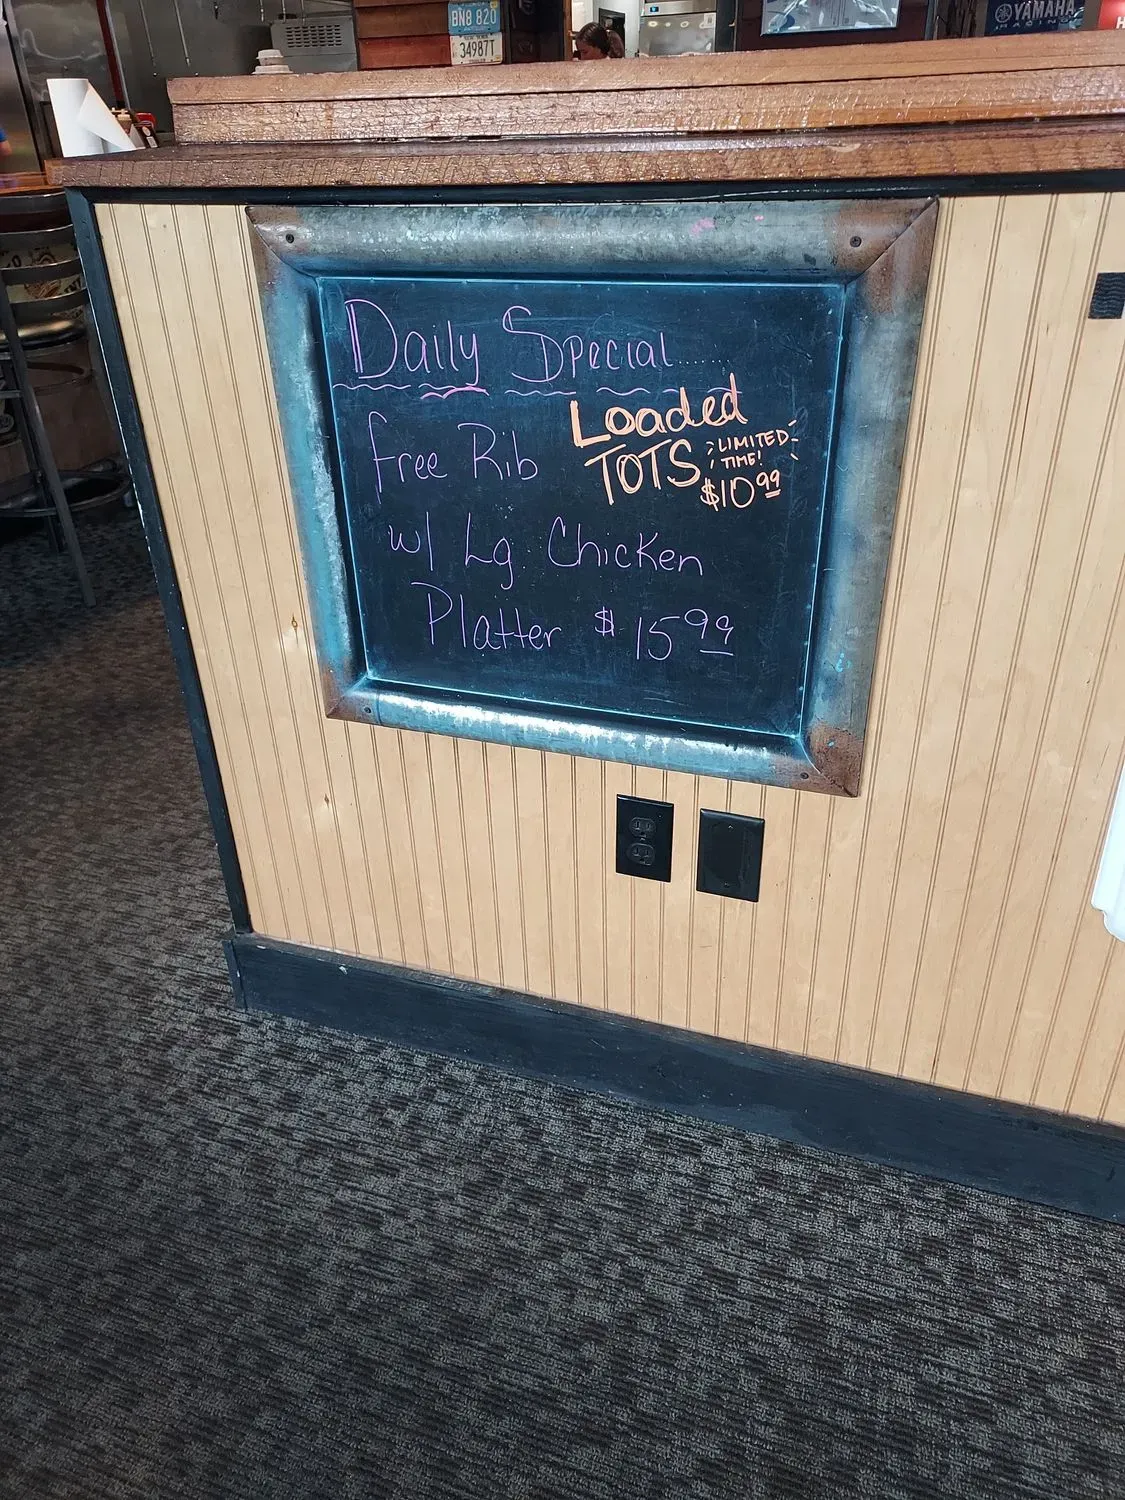 BN8 820
34987T
YAMAHA
Daily Special......
Loaded
TOTS
LIMITED
TIME!
$10 99
free Rib
w/ Lg Chicken
Platter $15 99